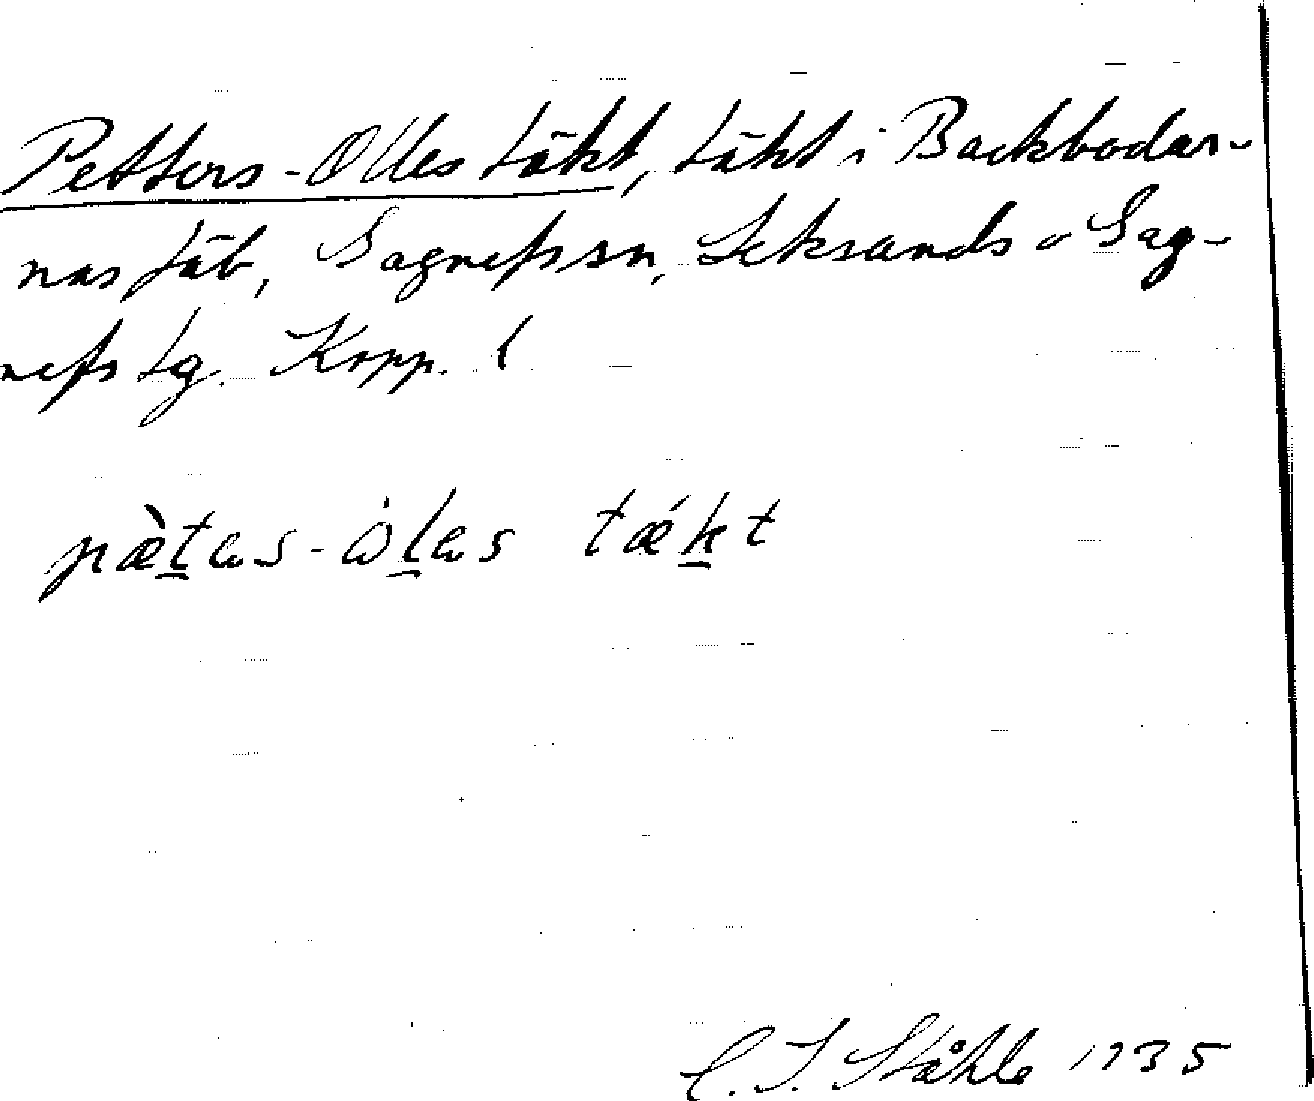 Petters-Olles täkt, täkt i Backbodar-
nas fäb, Gagnefs sn, Leksands o Gag-
nefs tg. Kopp. l
pæ̀t̲as-òl̲as tǽk̲t
C. I. Ståhle 1935